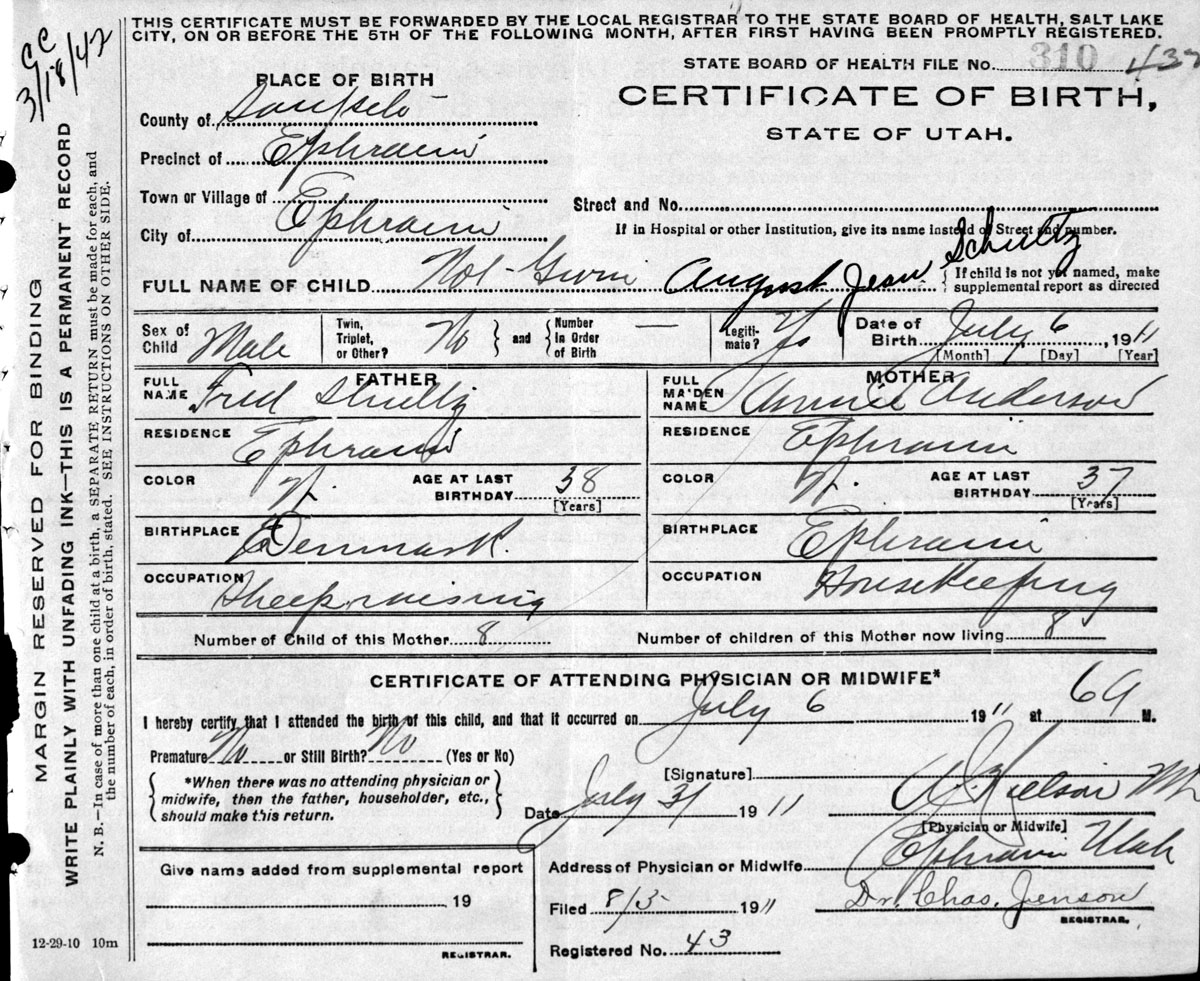 THIS CERTIFICATE MUST BE FORWARDED BY THE LOCAL REGISTRAR TO THE STATE BOARD OF HEALTH, SALT LAKE
CITY, ON OR BEFORE THE 5TH OF THE FOLLOWING MONTH, AFTER FIRST HAVING BEEN PROMPTLY REGISTERED.
3/18/42
STATE BOARD OF HEALTH FILE No. 310 437
PLACE OF BIRTH
CERTIFICATE OF BIRTH,
STATE OF UTAH.
County of
Precinct of Ephraim
Town or Village of
City of Ephraim
Street and No.
If in Hospital or other Institution, give its name instead of Street and number.
FULL NAME OF CHILD Not August Jean Schultz
{ If child is not yet named, make
supplemental report as directed
Sex of Child Male
Twin, Triplet, or Other? No } and { Number in Order of Birth —
Legitimate? Ys
Date of Birth July 6, 1911
[Month] [Day] [Year]
FATHER
FULL NAME Fred Shultz
RESIDENCE Ephraim
COLOR W. AGE AT LAST BIRTHDAY 38
[Years]
BIRTHPLACE Denmark.
OCCUPATION Sheep raising
MOTHER
FULL MAIDEN NAME Annie Anderson
RESIDENCE Ephraim
COLOR W. AGE AT LAST BIRTHDAY 37
[Years]
BIRTHPLACE Ephraim
OCCUPATION Housekeeping
Number of Child of this Mother 8 Number of children of this Mother now living 8
CERTIFICATE OF ATTENDING PHYSICIAN OR MIDWIFE*
I hereby certify that I attended the birth of this child, and that it occurred on July 6 1911 at 6 a M.
Premature No or Still Birth? No (Yes or No)
{ *When there was no attending physician or
midwife, then the father, householder, etc.,
should make this return. }
[Signature]
Date July 31 1911 Nielson
[Physician or Midwife]
Address of Physician or Midwife Ephraim Utah
Give name added from supplemental report
19
REGISTRAR.
Filed 8/3 1911 Dr. Chas. Jenson
REGISTRAR.
Registered No. 43
12-29-10 10m
MARGIN RESERVED FOR BINDING
WRITE PLAINLY WITH UNFADING INK—THIS IS A PERMANENT RECORD
N. B.—In case of more than one child at a birth, a SEPARATE RETURN must be made for each, and
the number of each, in order of birth, stated. SEE INSTRUCTIONS ON OTHER SIDE.